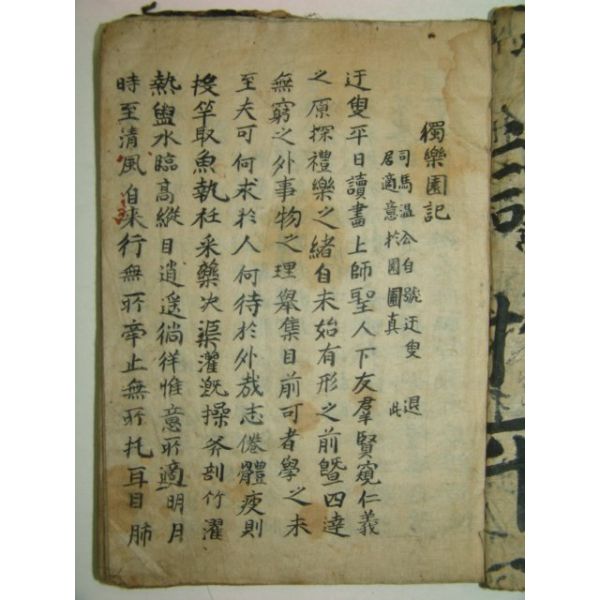 獨樂園記
司馬溫公自號迂叟 退
居適意於園圃真 此
迂叟平日讀書上師聖人下友羣賢窺仁義
之原探禮樂之緖自未始有形之前曁四逹
無窮之外事物之理舉集目前可者學之未
至夫可何求於人何待於外哉志倦體疲則
投竿取魚執衽采藥决渠灌漑操斧剖竹濯
熱盥水臨高縱目逍遙徜徉惟意所適明月
時至清風自來行無所牽止無所扥耳目肺